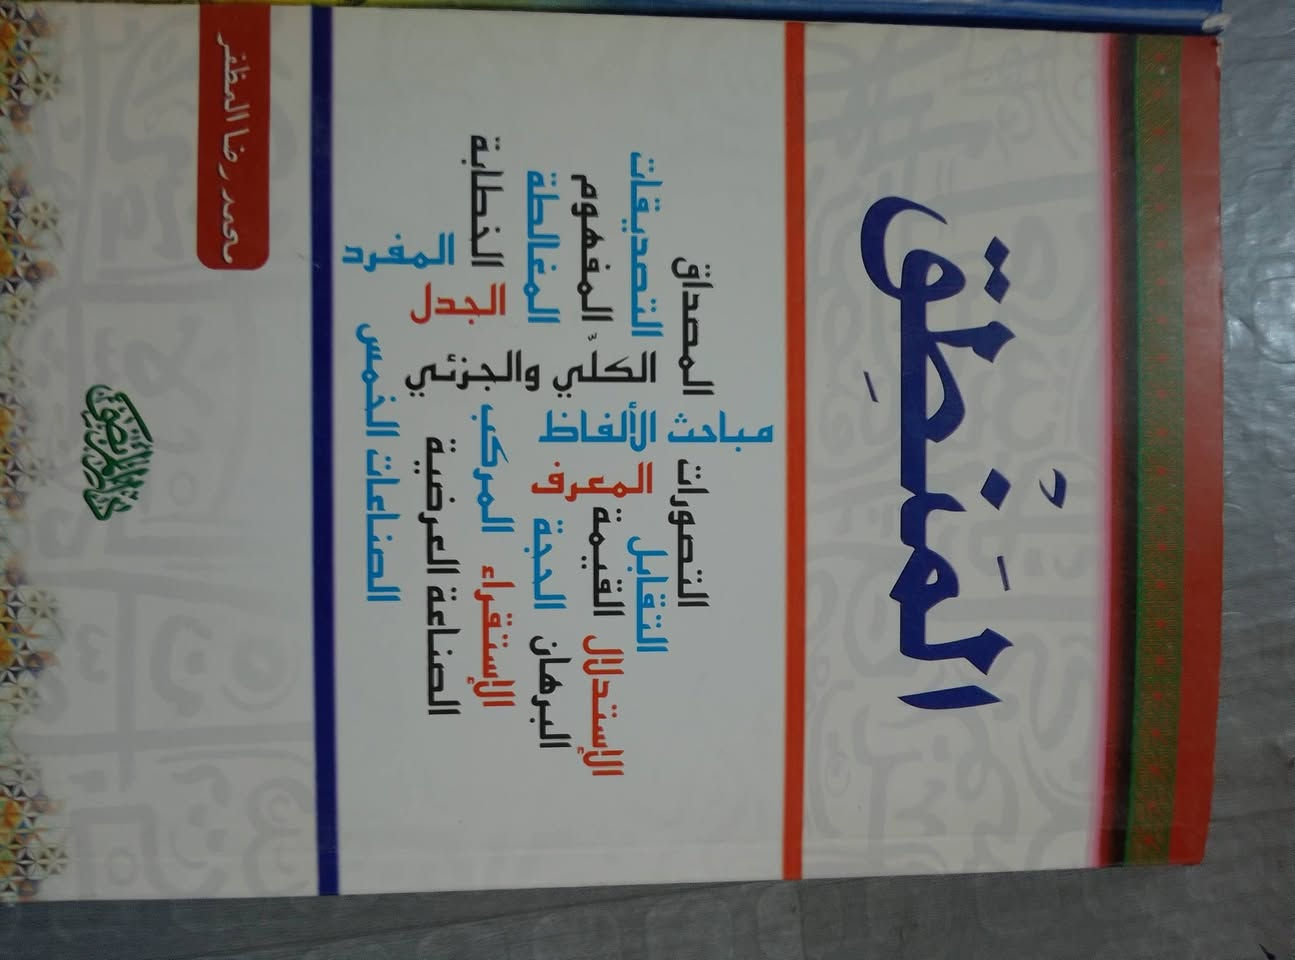 المَنْطِق
التصورات
المصداق
مباحث الألفاظ
التقابل
التصديقات
المعرف
الكلّي والجزئي
الإستدلال
القيمة
المفهوم
البرهان
الحجة
المغالطة
الإستقراء
المركب
الجدل
الخطابة
الصناعة العرضية
المفرد
الصناعات الخمس
محمد رضا المظفر